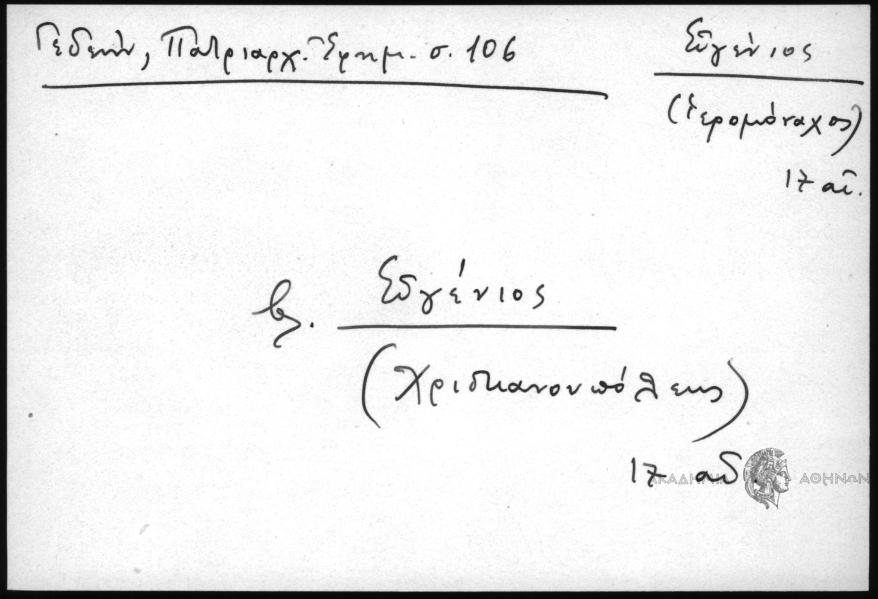 Γεδεών, Πατριαρχ. Ἐφημ. σ. 106
Εὐγένιος
(ἱερομόναχος)
17 αἰ.
βλ. Εὐγένιος
(Χριστιανουπόλεως)
17 αἰ.
ΑΚΑΔΗΜΙΑ ΑΘΗΝΩΝ